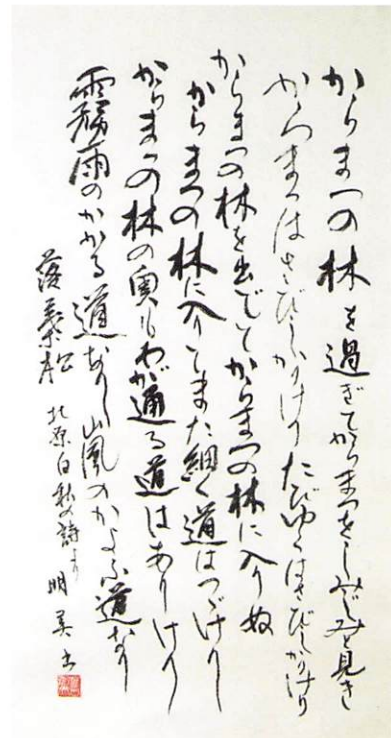 からまつの林を過ぎてからまつをしみじみと見き
からまつはさびしかりけりたびゆくはさびしかりけり
からまつの林を出でてからまつの林に入りぬ
からまつの林に入りてまた細く道はつづけり
からまつの林の奥もわが通る道はありけり
霧雨のかかる道なり山風のかよふ道なり
落葉松 北原白秋の詩より 明美書